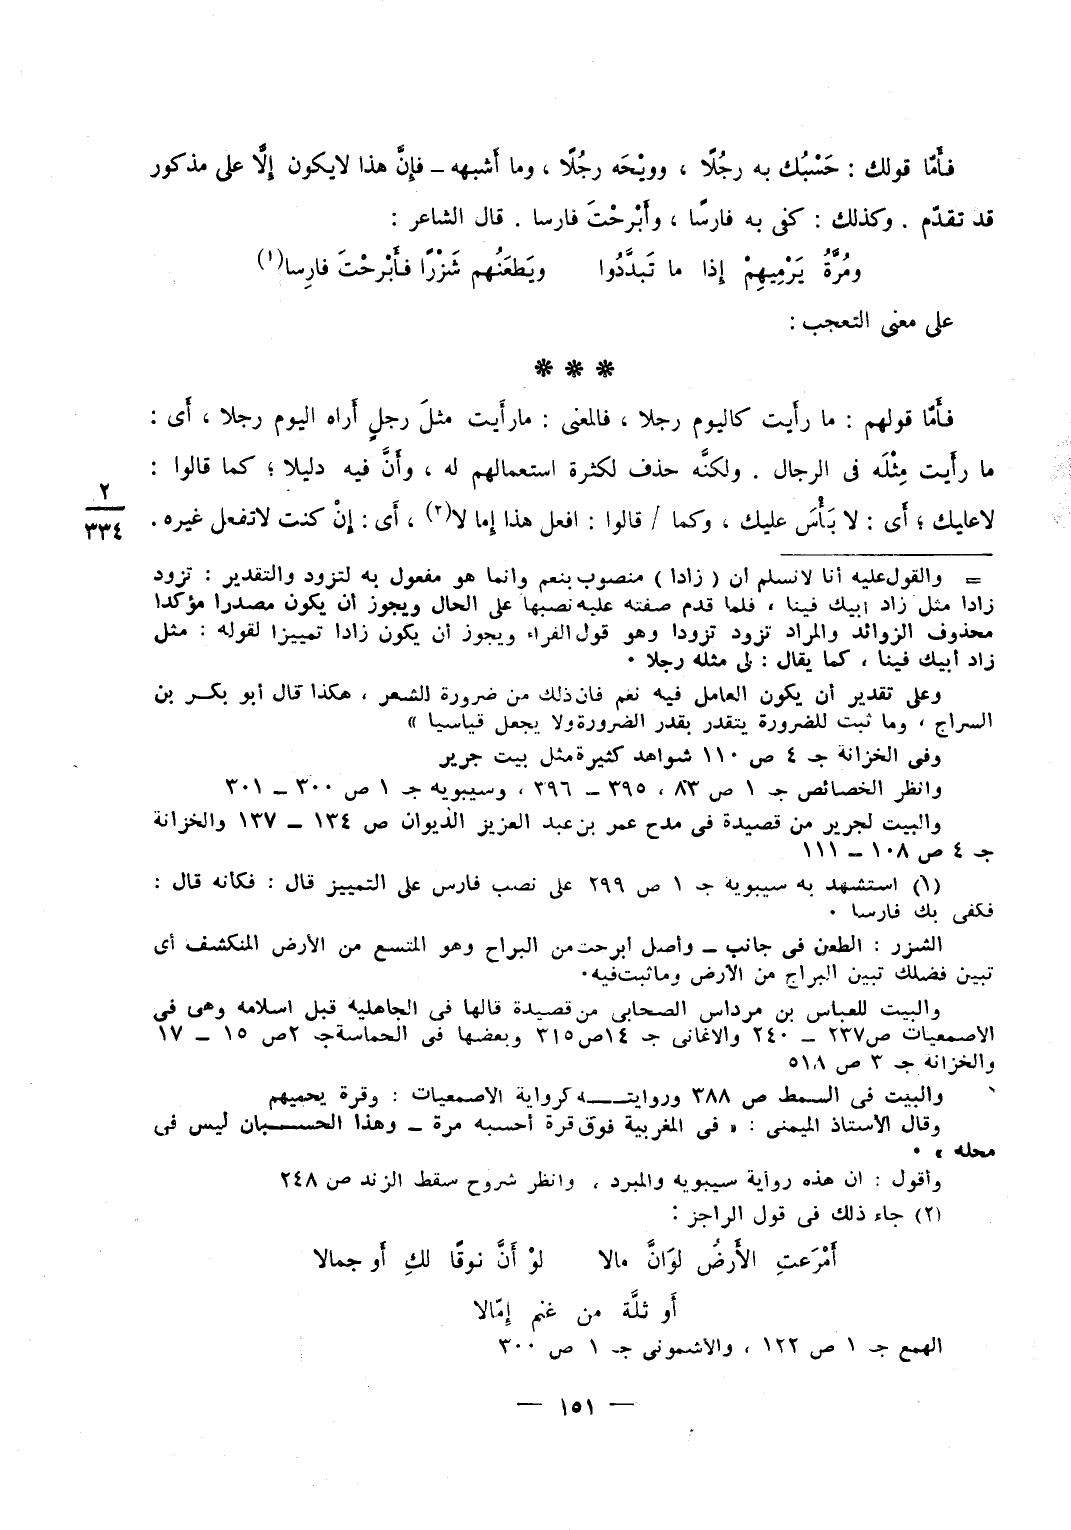 فأمّا قولك : حَسْبُك به رجُلًا ، وويْحَه رجُلًا ، وما أشبهه – فإنَّ هذا لايكون إلَّا على مذكور
قد تقدّم . وكذلك : كفى به فارسًا ، وأَبْرحْتَ فارسا . قال الشاعر :
ومُرَّةُ يَرْمِيهِمْ إذا ما تَبدَّدُوا ويَطعَنُهم شَزْرًا فأَبْرحْتَ فارِسا(١)
على معنى التعجب :
*** 
فأَمّا قولهم : ما رأَيت كاليوم رجلا ، فالمعنى : مارأَيت مثلَ رجلٍ أَراه اليوم رجلا ، أَى :
ما رأَيت مِثْلَه فى الرجال . ولكنَّه حذف لكثرة استعمالهم له ، وأَنَّ فيه دليلا ؛ كما قالوا :
٢
٣٣٤
لاعليك ؛ أَى : لا بَأْسَ عليك ، وكما / قالوا : افعل هذا إما لا(٢) ، أَى : إنْ كنت لاتفعل غيره .
= والقول عليه أنا لانسلم أن ( زادا ) منصوب بنعم وانما هو مفعول به لتزود والتقدير : تزود
زادا مثل زاد أبيك فينا ، فلما قدم صفته عليه نصبها على الحال ويجوز أن يكون مصدرا مؤكدا
محذوف الزوائد والمراد تزود تزودا وهو قول الفراء ويجوز أن يكون زادا تمييزا لقوله : مثل
زاد أبيك فينا ، كما يقال : لى مثله رجلا ٠
وعلى تقدير أن يكون العامل فيه نعم فان ذلك من ضرورة الشعر ، هكذا قال أبو بكر بن
السراج ، وما ثبت للضرورة يتقدر بقدر الضرورة ولا يجعل قياسيا »
وفى الخزانة جـ ٤ ص ١١٠ شواهد كثيرة مثل بيت جرير
وانظر الخصائص جـ ١ ص ٨٣ ، ٣٩٥ – ٣٩٦ ، وسيبويه جـ ١ ص ٣٠٠ – ٣٠١
والبيت لجرير من قصيدة فى مدح عمر بن عبد العزيز الديوان ص ١٣٤ – ١٣٧ والخزانة
جـ ٤ ص ١٠٨ – ١١١
(١) استشهد به سيبوية جـ ١ ص ٢٩٩ على نصب فارس على التمييز قال : فكأنه قال :
فكفى بك فارسا ٠
الشزر : الطعن فى جانب – وأصل أبرحت من البراح وهو المتسع من الأرض المنكشف أى
تبين فضلك تبين البراح من الأرض وما ثبت فيه٠
والبيت للعباس بن مرداس الصحابى من قصيدة قالها فى الجاهلية قبل اسلامه وهى فى
الاصمعيات ص٢٣٧ – ٢٤٠ والاغانى جـ ١٤ص٣١٥ وبعضها فى الحماسة جـ ٢ص ١٥ – ١٧
والخزانة جـ ٣ ص ٥١٨
والبيت فى السمط ص ٣٨٨ وروايتـــه كرواية الاصمعيات : وقرة يحميهم
وقال الأستاذ الميمنى : « فى المغربية فوق قرة أحسبه مرة – وهذا الحســـبان ليس فى
محله » ٠
وأقول : ان هذه رواية سيبويه والمبرد ، وانظر شروح سقط الزند ص ٢٤٨
(٢) جاء ذلك فى قول الراجز :
أَمْرَعتِ الأَرضُ لوَانَّ مالا لوْ أَنَّ نوقًا لكِ أَو جمالا
أَو ثلَّة من غنم إمّالا
الهمع جـ ١ ص ١٢٢ ، والأشمونى جـ ١ ص ٣٠٠
— ١٥١ —